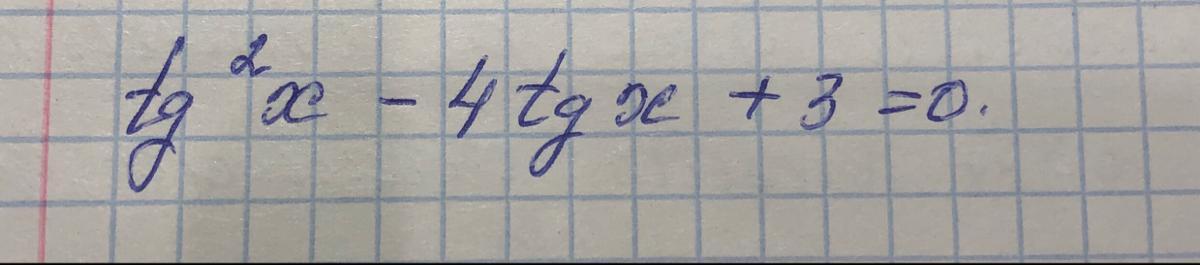 tg²x - 4tgx + 3 = 0.